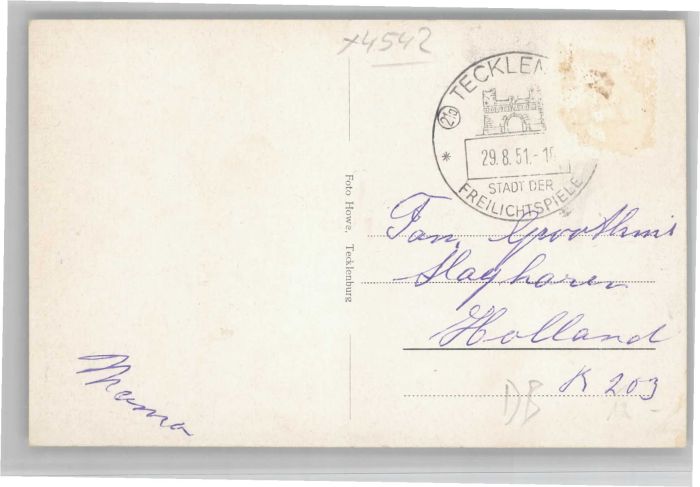 x4542
TECKLEN
(21a)
29.8.51.-1
STADT DER
FREILICHTSPIELE
Foto Howe, Tecklenburg
Fam. Groothuis
Slagharen
Holland
K 203
Mama
DB